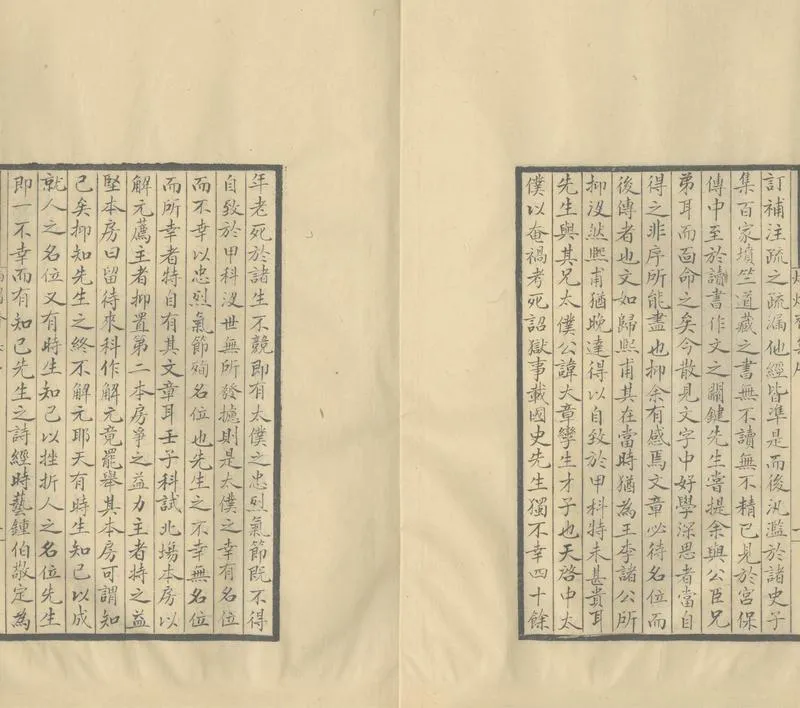 訂補注疏之疏漏他經皆準是而後汎濫於諸史子
集百家墳竺道藏之書無不讀無不精已見於宮保
傳中至於讀書作文之關鍵先生嘗提余與公臣兄
弟耳而面命之矣今散見文字中好學深思者當自
得之非序所能盡也抑余有感焉文章必待名位而
後傳者也文如歸熙甫其在當時猶為王李諸公所
抑沒然熙甫猶晚達得以自致於甲科特未甚貴耳
先生與其兄太僕公諱大章孿生才子也天啓中太
僕以奄禍考死詔獄事載國史先生獨不幸四十餘
年老死於諸生不競即有太僕之忠烈氣節既不得
自致於甲科沒世無所發攄則是太僕之幸有名位
而不幸以忠烈氣節殉名位也先生之不幸無名位
而所幸者特自有其文章耳壬子科試北場本房以
解元薦主者抑置第二本房爭之益力主者持之益
堅本房曰留待來科作解元竟罷舉其本房可謂知
己矣抑知先生之終不解元耶天有時生知己以成
就人之名位又有時生知己以挫折人之名位先生
即一不幸而有知己先生之詩經時藝鍾伯敬定為